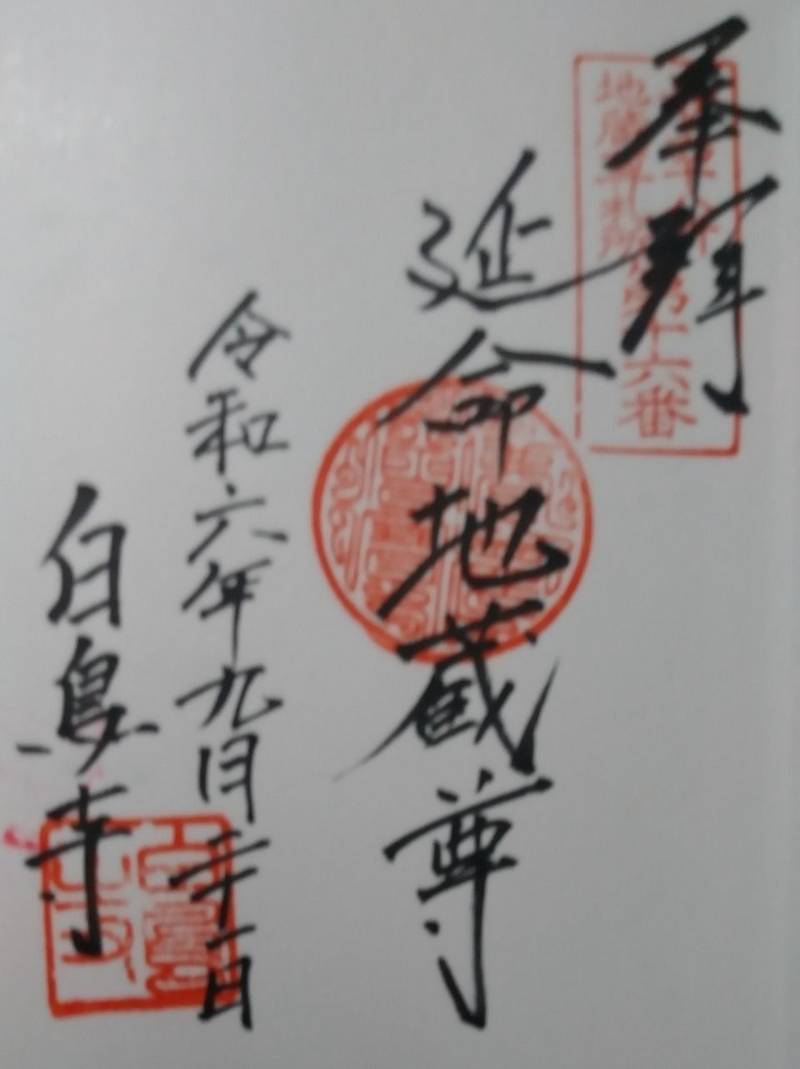 奉拝
第十六番
延命地蔵尊
令和六年九月二十一日
白鳥寺